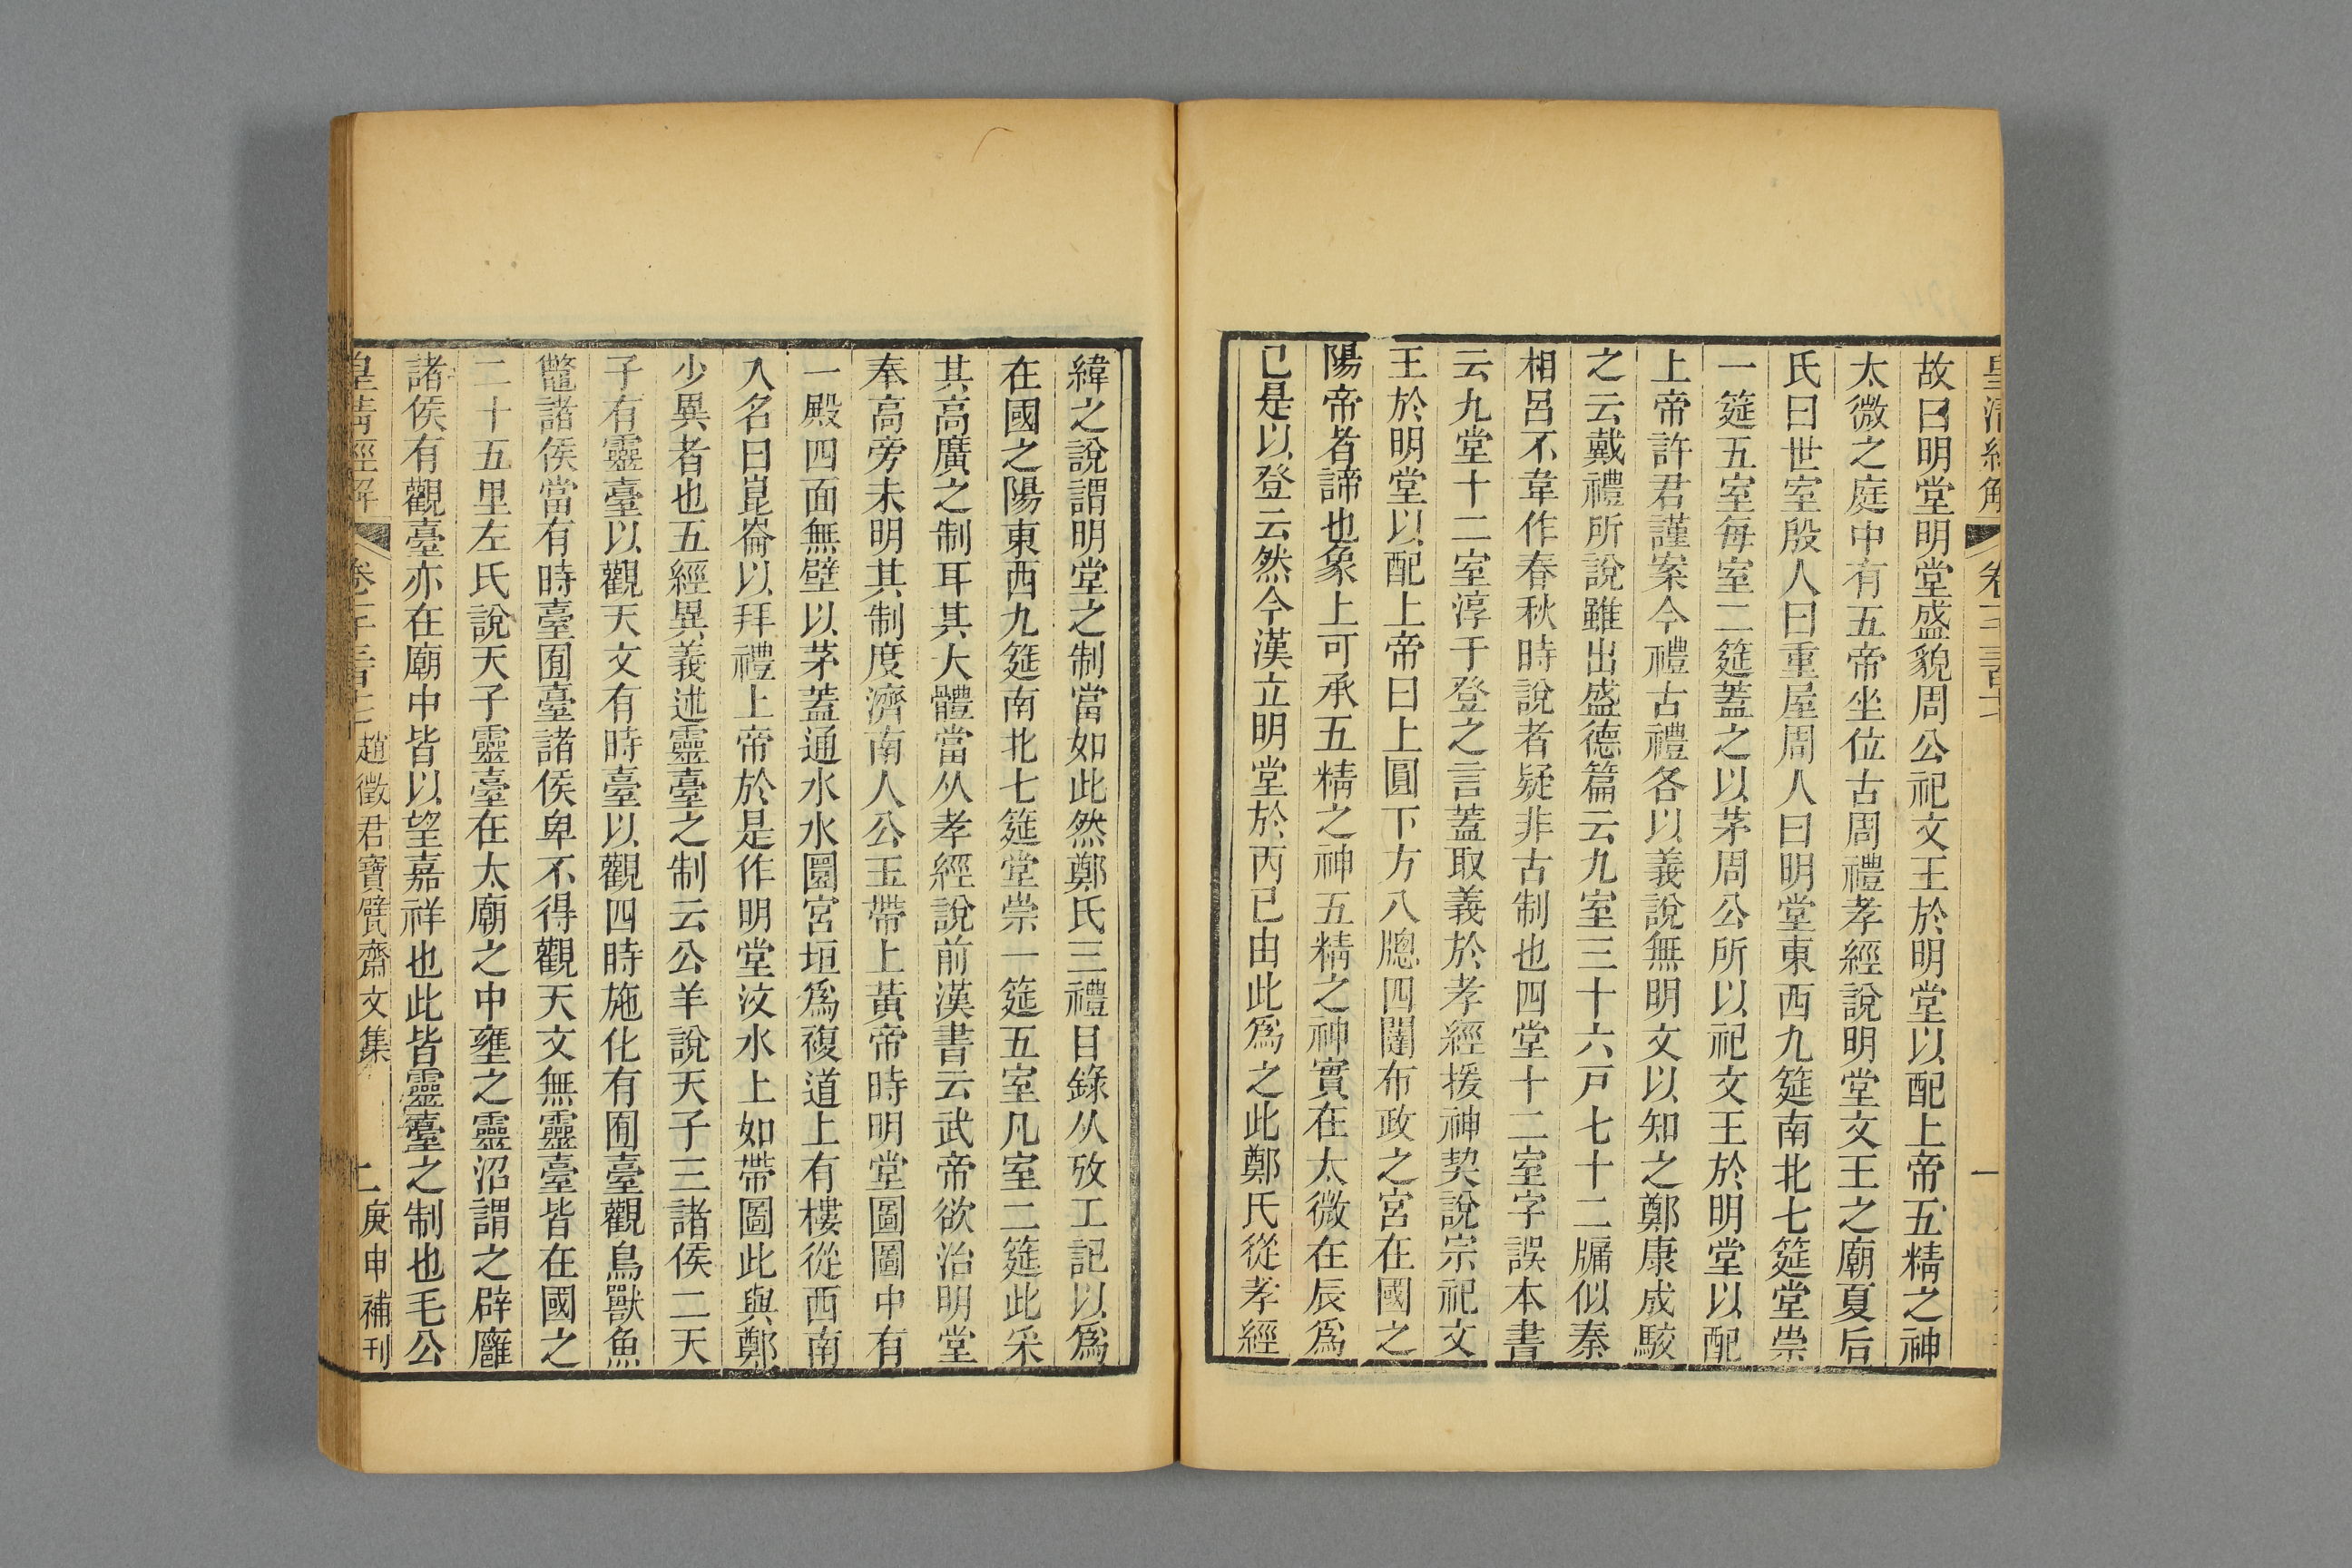 皇清經解 卷一千三百十 一
故曰明堂明堂盛貌周公祀文王於明堂以配上帝五精之神
太微之庭中有五帝坐位古周禮孝經說明堂文王之廟夏后
氏曰世室殷人曰重屋周人曰明堂東西九筵南北七筵堂崇
一筵五室每室二筵蓋之以茅周公所以祀文王於明堂以配
上帝許君謹案今禮古禮各以義說無明文以知之鄭康成駮
之云戴禮所說雖出盛德篇云九室三十六戸七十二牖似秦
相呂不韋作春秋時說者疑非古制也四堂十二室字誤本書
云九堂十二室淳于登之言蓋取義於孝經援神契說宗祀文
王於明堂以配上帝曰上圓下方八牎四闥布政之宮在國之
陽帝者諦也象上可承五精之神五精之神實在太微在辰爲
已是以登云然今漢立明堂於丙已由此爲之此鄭氏從孝經
緯之說謂明堂之制當如此然鄭氏三禮目錄从攷工記以爲
在國之陽東西九筵南北七筵堂崇一筵五室凡室二筵此采
其高廣之制耳其大體當从孝經說前漢書云武帝欲治明堂
奉高旁未明其制度濟南人公玉帶上黃帝時明堂圖圖中有
一殿四面無壁以茅蓋通水水圜宮垣爲複道上有樓從西南
入名曰崑崙以拜禮上帝於是作明堂汶水上如帶圖此與鄭
少異者也五經異義述靈臺之制云公羊說天子三諸侯二天
子有靈臺以觀天文有時臺以觀四時施化有囿臺觀鳥獸魚
鼈諸侯當有時臺囿臺諸侯卑不得觀天文無靈臺皆在國之
二十五里左氏說天子靈臺在太廟之中壅之靈沼謂之辟廱
諸侯有觀臺亦在廟中皆以望嘉祥也此皆靈臺之制也毛公
皇清經解 趙徵君寶甓齋文集 庚申補刊